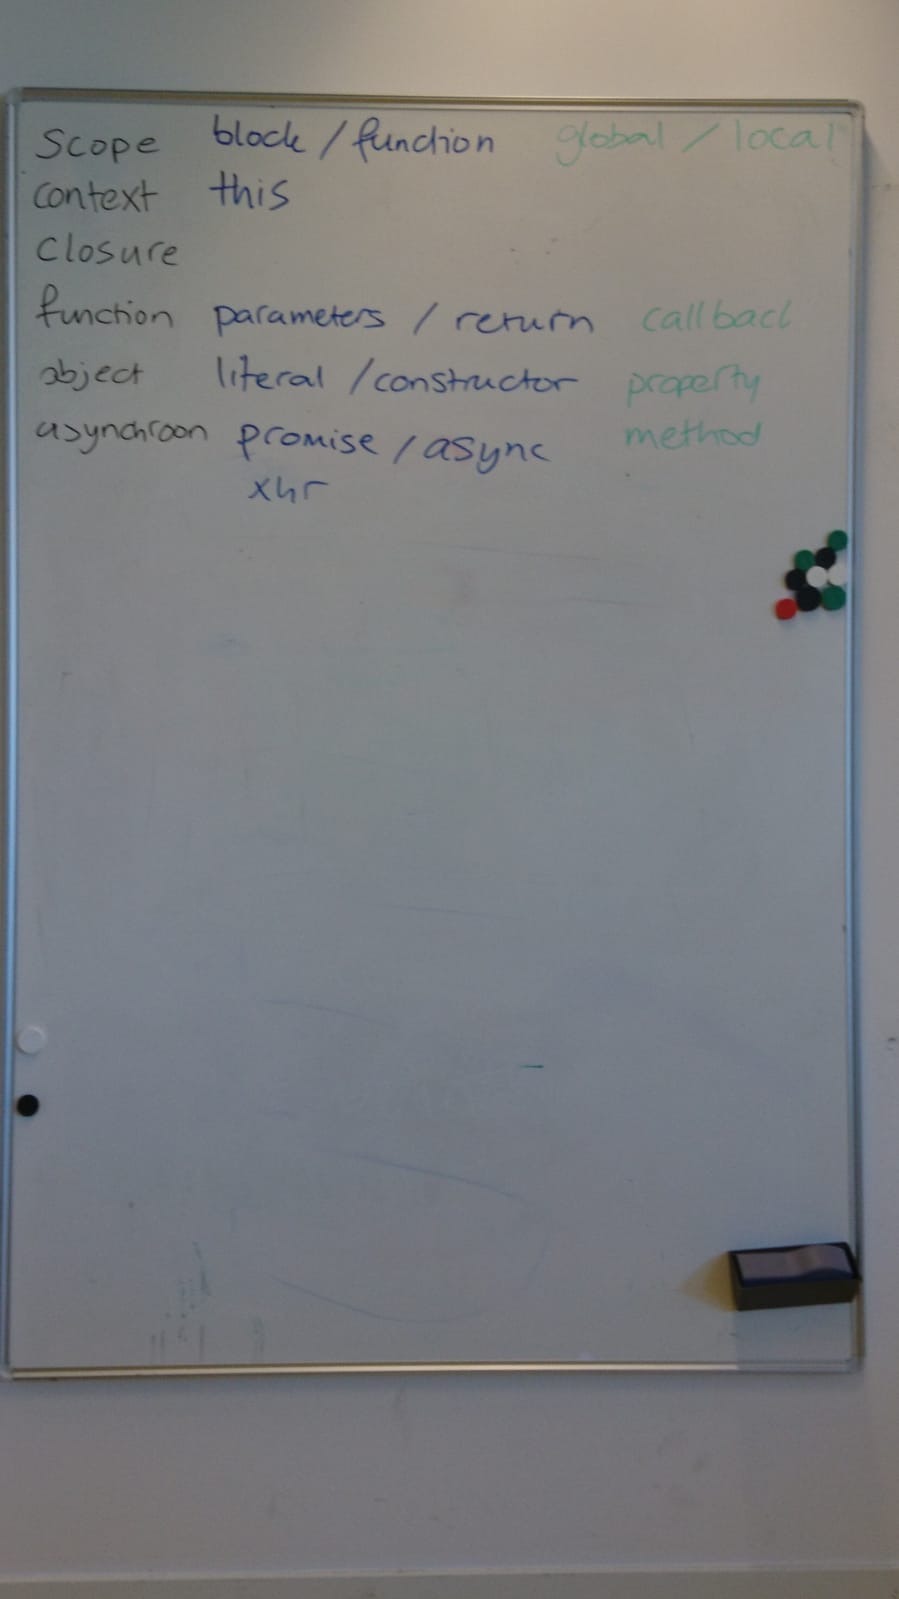 Scope block / function global / local
context this
Closure
function parameters / return callback
object literal / constructor property
asynchroon promise / async method
xhr